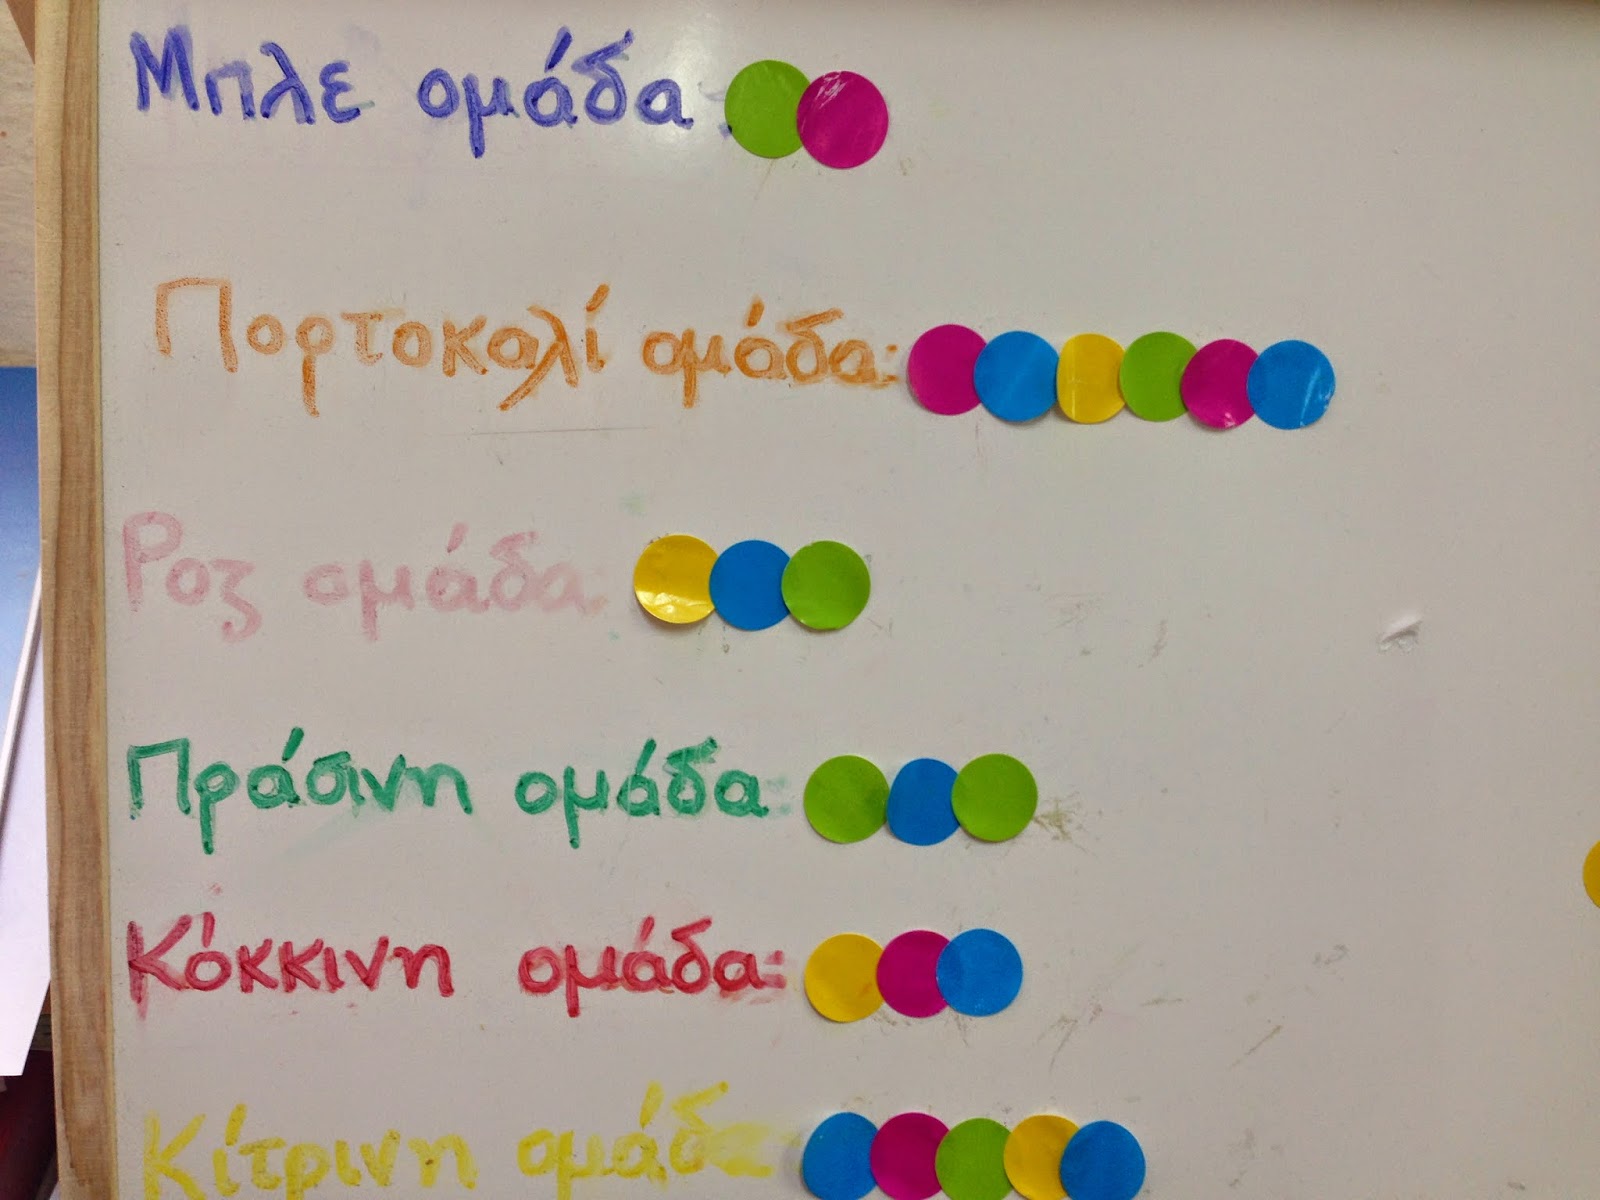 Μπλε ομάδα:
Πορτοκαλί ομάδα:
Ροζ ομάδα:
Πράσινη ομάδα:
Κόκκινη ομάδα:
Κίτρινη ομάδα: